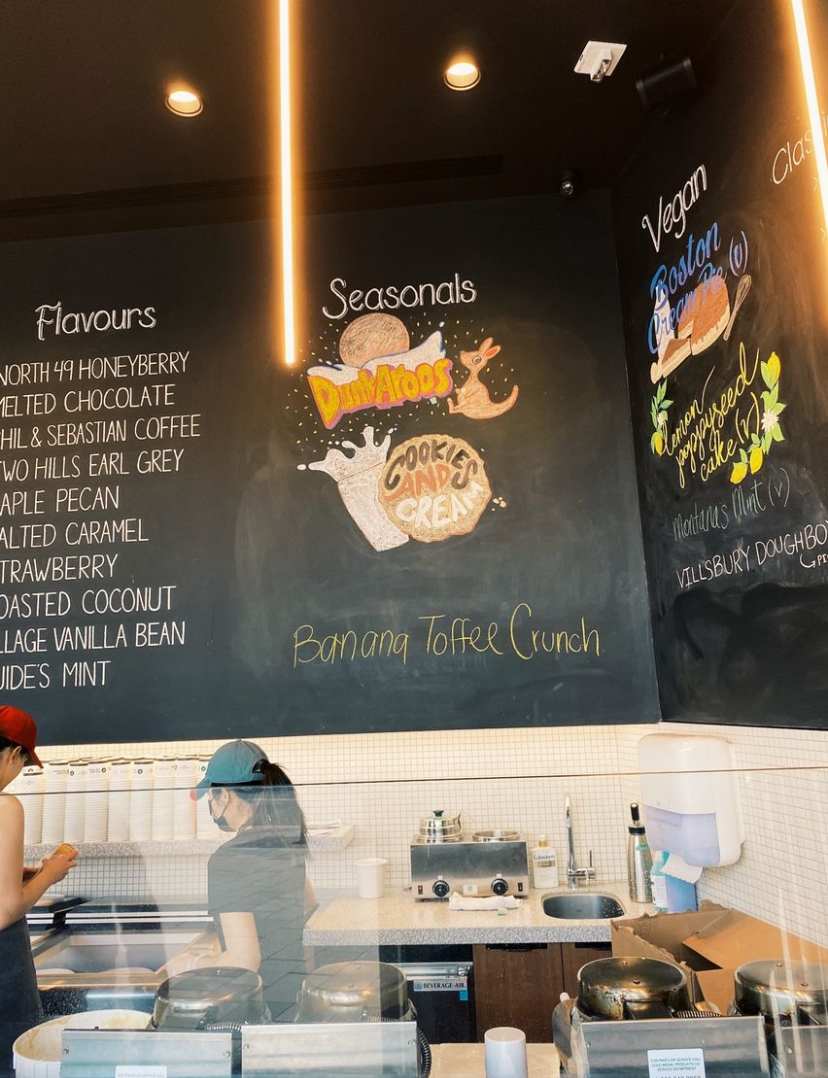 Flavours
NORTH 49 HONEYBERRY
MELTED CHOCOLATE
PHIL & SEBASTIAN COFFEE
TWO HILLS EARL GREY
APLE PECAN
ALTED CARAMEL
TRAWBERRY
OASTED COCONUT
LLAGE VANILLA BEAN
UIDE'S MINT
Seasonals
DunkAroos
COOKIES
AND
CREAM
Banana Toffee Crunch
Vegan
Boston
Cream Pie (v)
Lemon
poppyseed
cake (v)
Montana's Mint (v)
VILLSBURY DOUGHBOY
Classi
BEVERAGE-AIR